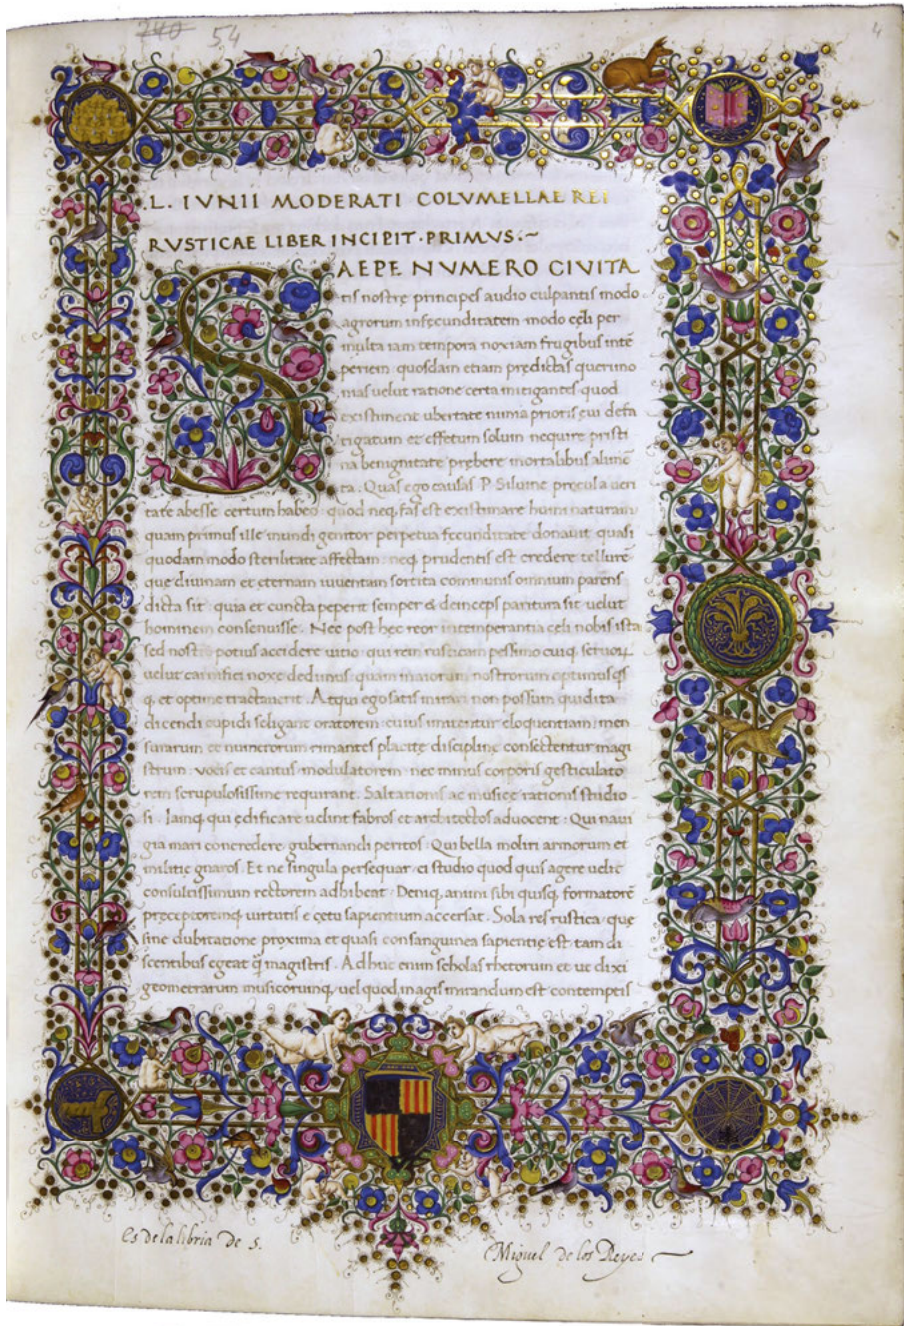 240 54
4
L. IVNII MODERATI COLVMELLAE REI
RVSTICAE LIBER INCIPIT·PRIMVS:~
SAEPE NVMERO CIVITA
tis nostrę principes audio culpantis modo
agrorum infęcunditatem modo cęli per
multa iam tempora noxiam frugibus intē
periem quosdam etiam prędictas querimo
nias uelut ratione certa mitigantes quod
existiment ubertate nimia prioris eui defa
tigatum et effetum solum nequire pristi
na benignitate prębere mortalibus alimē
ta. Quas ego causas P. Siluine procul a ueri
tate abesse certum habeo quod neq. fas est existimare humi naturam
quam primus ille mundi genitor perpetua fecunditate donauit quasi
quodam modo sterilitate affectam: neq. prudentis est credere tellurē
que diuinam et eternam iuuentam sortita communis omnium parens
dicta sit quia et cuncta peperit semper & deinceps paritura sit uelut
hominem consenuisse. Nec post hec reor intemperantia cęli nobis ista
sed nostro potius accidere uitio qui rem rusticam pessimo cuiq. seruoꝝ
uelut carnifici noxe dedimus quam maiorum nostrorum optimus
q. et optime tractauerit. Atqui ego satis mirari non possum quid ita
dicendi cupidi seligant oratorem cuius imitentur eloquentiam: men
surarum et numerorum rimantes placitę disciplinę consectentur magi
strum: vocis et cantus modulatorem nec minus corporis gesticulato
rem scrupulosissime requirant. Saltationis ac musicę rationis studio
si. Iamq. qui ędificare uelint fabros et architectos aduocent: Qui naui
gia mari concredere gubernandi peritos. Qui bella moliri armorum et
militię gnaros. Et ne singula persequar ei studio quod quis agere uelit
consultissimum rectorem adhibeat. Deniq. animi sibi quisq. formatorē
pręceptoremq. virtutis e cętu sapientium accersat. Sola res rustica que
sine dubitatione proxima et quasi consanguinea sapientię est tam di
scentibus egeat q̄ magistris. Adhuc enim scholas rhetorum et ut dixi
geometrarum musicorumq. uel quod magis mirandum est contemptis
Es de la libria de S. Miguel de los Reyes